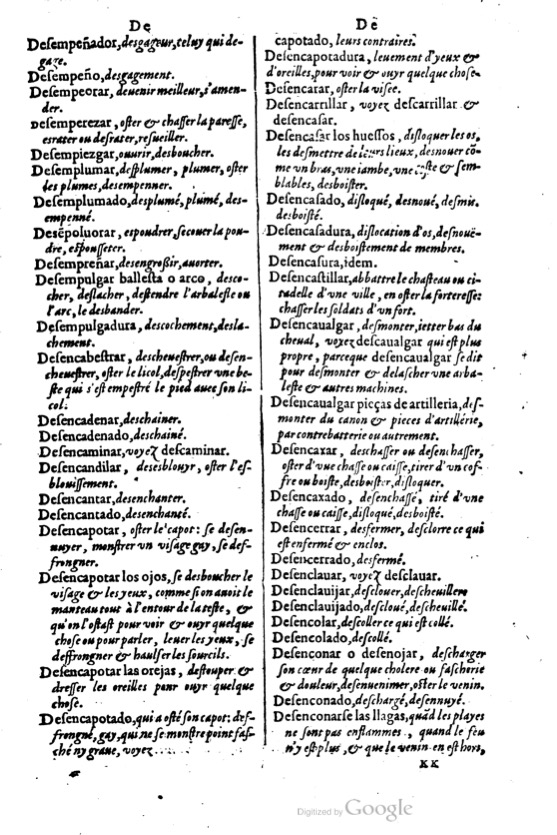 De
Desempeñador, desgageur, celuy qui de-
gage.
Desempeño, desgagement.
Desempeorar, deuenir meilleur, s'amen-
der.
Desemperezar, oster & chasser la paresse,
esrater ou desrater, resueiller.
Desempiezgar, ouurir, desboucher.
Desemplumar, desplumer, plumer, oster
les plumes, desempenner.
Desemplumado, desplumé, plumé, des-
empenné.
Desēpoluorar, espoudrer, secouer la pou-
dre, espousseter.
Desempreñar, desengroßir, auorter.
Desempulgar ballesta o arco, desco-
cher, deslacher, destendre l'arbaleste ou
l'arc, le desbander.
Desempulgadura, descochement, desla-
chement.
Desencabestrar, descheuestrer, ou desen-
cheuestrer, oster le licol, despestrer vne be-
ste qui s'est empestré le pied auec son li-
col.
Desencadenar, deschainer.
Desencadenado, deschainé.
Desencaminar, voyez descaminar.
Desencandilar, desesblouyr, oster l'es-
blouissement.
Desencantar, desenchanter.
Desencantado, desenchanté.
Desencapotar, oster le capot: se desen-
nuyer, monstrer vn visage gay, se des-
frongner.
Desencapotar los ojos, se desboucher le
visage & les yeux, comme si on auoit le
manteau tout à l'entour de la teste, &
qu'on l'ostast pour voir & ouyr quelque
chose ou pour parler, leuer les yeux, se
deffrongner & haulser les sourcils.
Desencapotar las orejas, destouper &
dresser les oreilles pour ouyr quelque
chose.
Desencapotado, qui a osté son capot: des-
frongné, gay, qui ne se monstre point fas-
ché ny graue, voyez
De
capotado, leurs contraires.
Desencapotadura, leuement d'yeux &
d'oreilles, pour voir & ouyr quelque chose.
Desencarar, oster la visee.
Desencarrillar, voyez descarrillar &
desencasar.
Desencasar los huessos, disloquer les os,
les desmettre de leurs lieux, desnouer cō-
me vn bras, vne iambe, vne coste & sem-
blables, desboister.
Desencasado, disloqué, desnoué, desmis,
desboisté.
Desencasadura, dislocation d'os, desnouë-
ment & desboistement de membres.
Desencasura, idem.
Desencastillar, abbattre le chasteau ou ci-
tadelle d'vne ville, en oster la forteresse:
chasser les soldats d'vn fort.
Desencaualgar, desmonter, ietter bas du
cheual, voyez descaualgar qui est plus
propre, parceque desencaualgar se dit
pour desmonter & delascher vne arba-
leste & autres machines.
Desencaualgar pieças de artilleria, des-
monter du canon & pieces d'artillerie,
par contrebatterie ou autrement.
Desencaxar, deschasser ou desenchasser,
oster d'vne chasse ou caisse, tirer d'vn cof-
fre ou boiste, desboister, disloquer.
Desencaxado, desenchassé, tiré d'vne
chasse ou caisse, disloqué, desboisté.
Desencerrar, desfermer, desclorre ce qui
est enfermé & enclos.
Desencerrado, desfermé.
Desenclauar, voyez desclauar.
Desenclauijar, desclouer, descheuiller.
Desenclauijado, descloué, descheuillé.
Desencolar, descoller ce qui est collé.
Desencolado, descollé.
Desenconar o desenojar, descharger
son cœur de quelque cholere ou fascherie
& douleur, desenuenimer, oster le venin.
Desenconado, deschargé, desennuyé.
Desenconarse las llagas, quād les playes
ne sont pas enflammes, quand le feu
n'y est plus, & que le venin en est hors,
KK
Digitized by Google